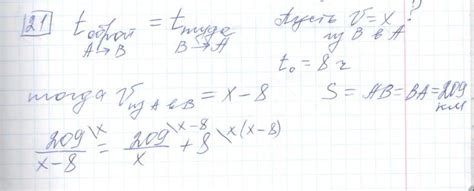 21 t оброт = t туда Пусть V = x ?
A → B B → A из B в A
t₀ = 8 ч
тогда V из A в B = x - 8 S = AB = BA = 209 км
209 \x / x-8 = 209 \x-8 / x + 8 \x(x-8)